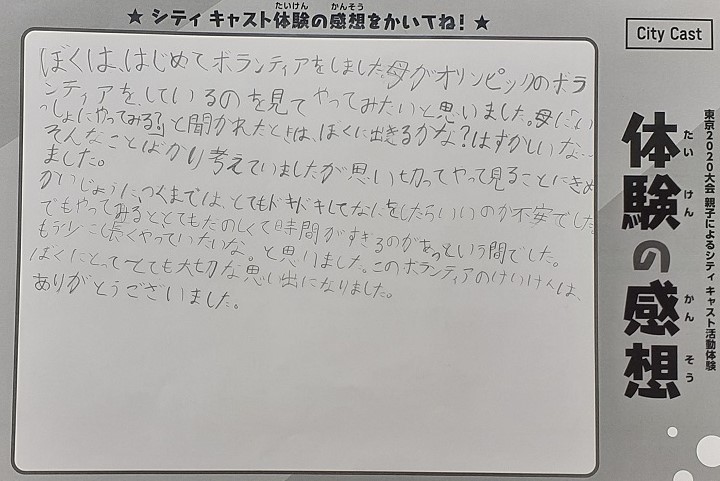 ★ シティ キャスト体験の感想をかいてね! ★
たいけん かんそう
ぼくは、はじめてボランティアをしました。母がオリンピックのボラ
ンティアを、しているのを見てやってみたいと思いました。母に「い
っしょにやってみる?」と聞かれたときは、ぼくに出きるかな?はずかしいな…
そんなことばかり考えていましたが思い切ってやって見ることにきめ
ました。
かいじょうに、つくまでは、とてもドキドキしてなにをしたらいいのか不安でした。
でもやってみると、とてもたのしくて時間がすぎるのがあっという間でした。
もう少こし長くやっていたいな。と思いました。このボランティアのけいけんは、
ぼくにとってとても大切な思い出になりました。
ありがとうございました。
City Cast
東京2020大会 親子によるシティ キャスト活動体験
体験の感想
たいけん かんそう